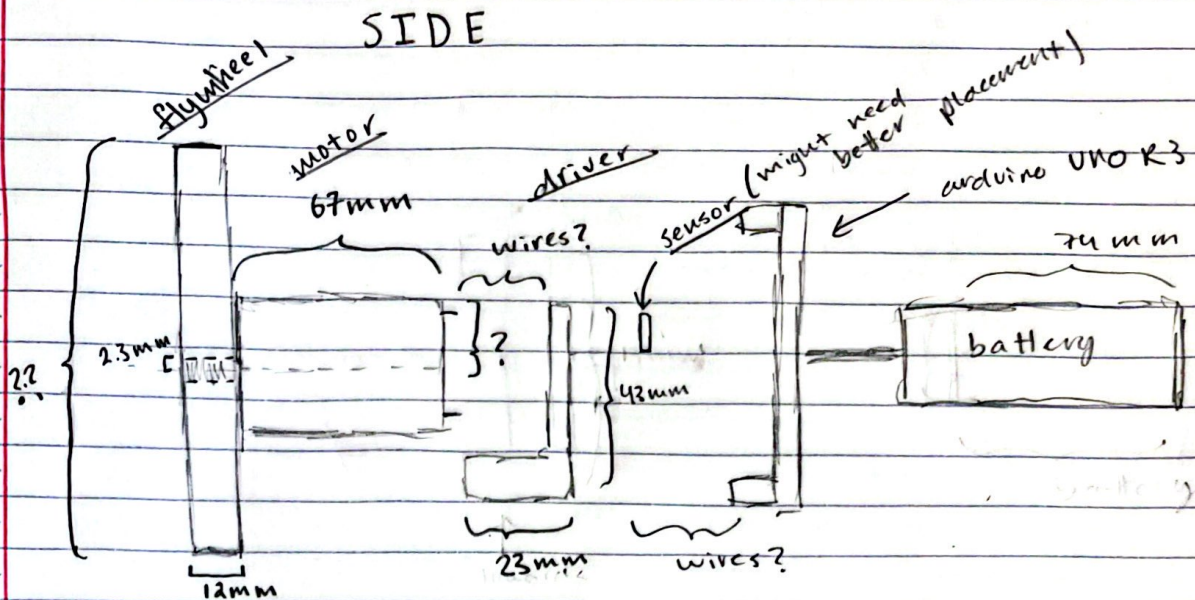 SIDE
flywheel
motor
67mm
driver
wires?
sensor (might need
better placement)
arduino UNO R3
74 mm
battery
2.3mm
??
?
43mm
23mm
wires?
12mm